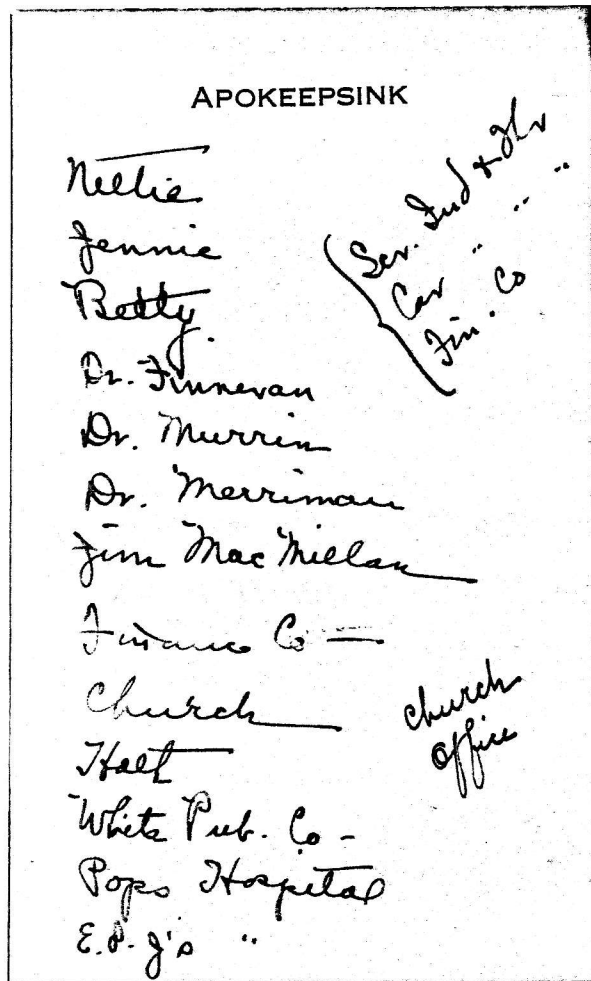 APOKEEPSINK
Nellie
Jennie
Betty.
Dr. Finnevan
Dr. Murrin
Dr. Merriman
Jim MacMillan
Finance Co —
Church
Holt
White Pub. Co -
Pops Hospital
E.P.J's "
Ser. Ind &
Car " " "
Fin. Co
Church
Office